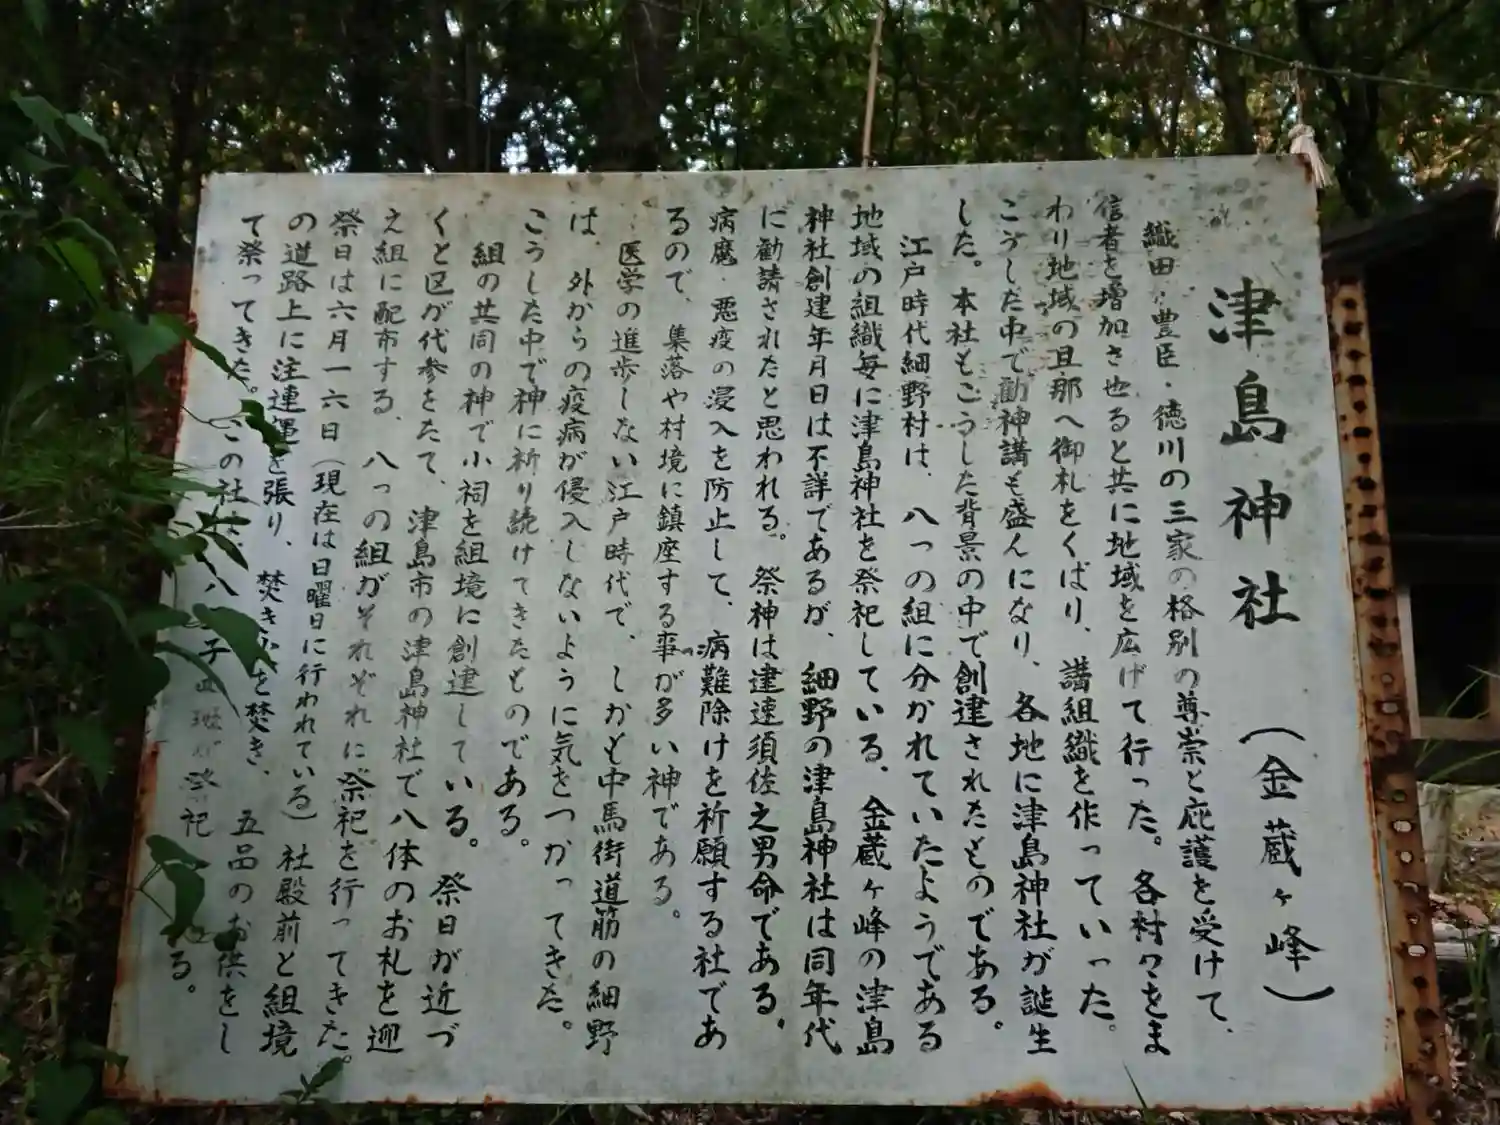 津島神社 (金蔵ヶ峰)
織田・豊臣・徳川の三家の格別の尊崇と庇護を受けて、
信者を増加さ也ると共に地域を広げて行った。各村々をま
わり地域の旦那へ御札をくばり、講組織を作っていった。
こうした中で勧神講も盛んになり、各地に津島神社が誕生
した。本社もこうした背景の中で創建されたものである。
江戸時代細野村は、八っの組に分かれていたようである
地域の組織毎に津島神社を祭祀している、金蔵ヶ峰の津島
神社創建年月日は不詳であるが、細野の津島神社は同年代
に勧請されたと思われる。祭神は建速須佐之男命である、
病魔・悪疫の浸入を防止して、病難除けを祈願する社であ
るので、集落や村境に鎮座する事が多い神である。
医学の進歩しない江戸時代で、しかも中馬街道筋の細野
は、外からの疫病が侵入しないように気をつかってきた。
こうした中で神に祈り続けてきたものである。
組の共同の神で小祠を組境に創建している。祭日が近づ
くと区が代参をたて、津島市の津島神社で八体のお札を迎
え組に配布する、八っの組がそれぞれに祭祀を行ってきた。
祭日は六月一六日(現在は日曜日に行われている)社殿前と組境
の道路上に注連縄を張り、焚き火を焚き、五品のお供をし
て祭ってきた。この社は、八 子 祭祀 る。